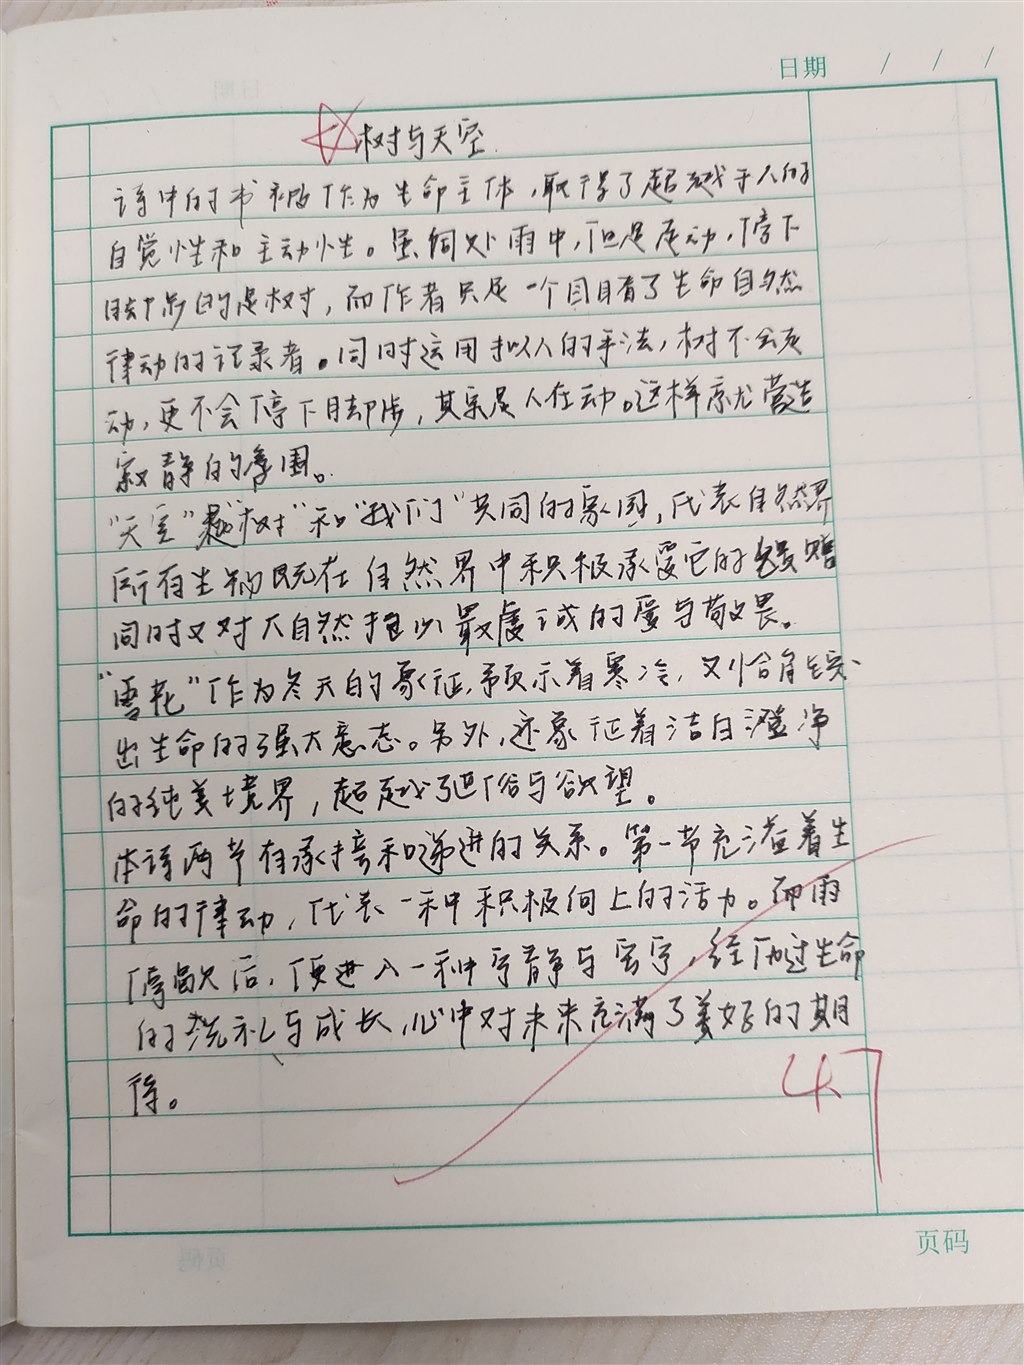 日期 / / /
树与天空
诗中的书被作为生命主体，取得了超越于人的
自觉性和主动性。虽同处雨中，但是走动，停下
脚步的是树，而作者只是一个目睹了生命自然
律动的记录者。同时运用拟人的手法，树不会走
动，更不会停下脚步，其实是人在动。这样就营造
寂静的氛围。
"天空" "树"和"我们"共同的家园，代表自然界
所有生物既在自然界中积极承受它的馈赠
同时又对大自然报以最虔诚的爱与敬畏。
"雪花"作为冬天的象征，预示着寒冷，又恰恰
出生命的强大意志。另外，还象征着洁白澄净
的纯美境界，超越了世俗与欲望。
本诗两节有承接和递进的关系。第一节充渣着生
命的律动，代表一种积极向上的活力。而雨
停歇后，便进入一种宁静与安宁，经历过生命
的洗礼与成长，心中对未来充满了美好的期
待。
47
页码